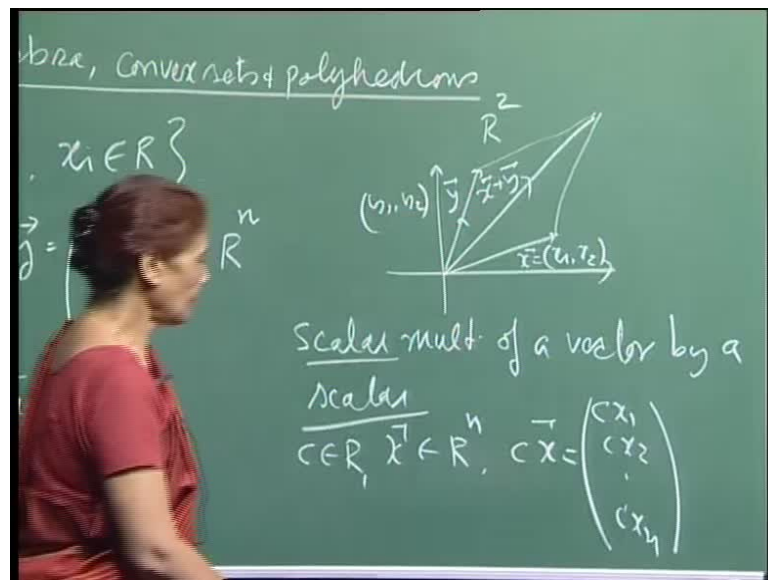 bra, convex sets & polyhedrons
, xi ∈ R}
y⃗ = ( R^n
R^2
(y1, y2)
y⃗
x⃗+y⃗
x⃗=(x1, x2)
Scalar mult. of a vector by a
scalar
C∈R, x⃗ ∈ R^n, c x⃗ = (cx1
cx2
.
cxn)